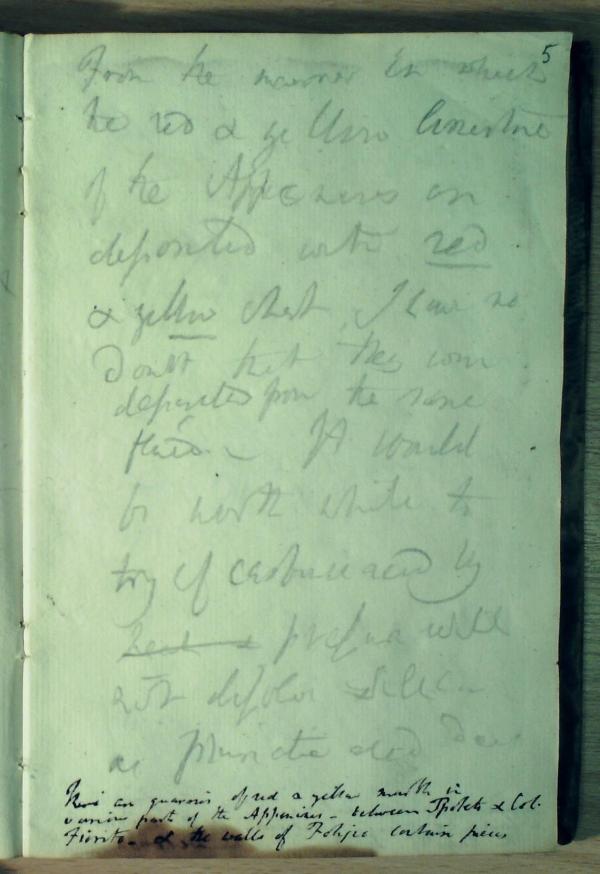 5
From the manner in which
the red & yellow limestone
of the Appenines are
deposited with red
& yellow chert, I have no
doubt that they were
deposited from the same
fluid. It would
be worth while to
try if carbonic acid by
heat & pressure will
not dissolve silica
as fluoric acid does
There are quarries of red & yellow marble in
various parts of the Appenines - between Spoleto & Col.
Fiorito - & the walls of Foligno contain pieces